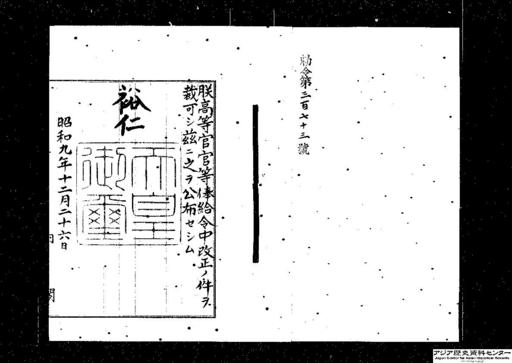 勅令第三百七十三號
朕高等官官等俸給令中改正ノ件ヲ
裁可シ茲ニ之ヲ公布セシム
裕仁
天皇
御璽
昭和九年十二月二十六日
内閣
アジア歴史資料センター
Japan Center for Asian Historical Records